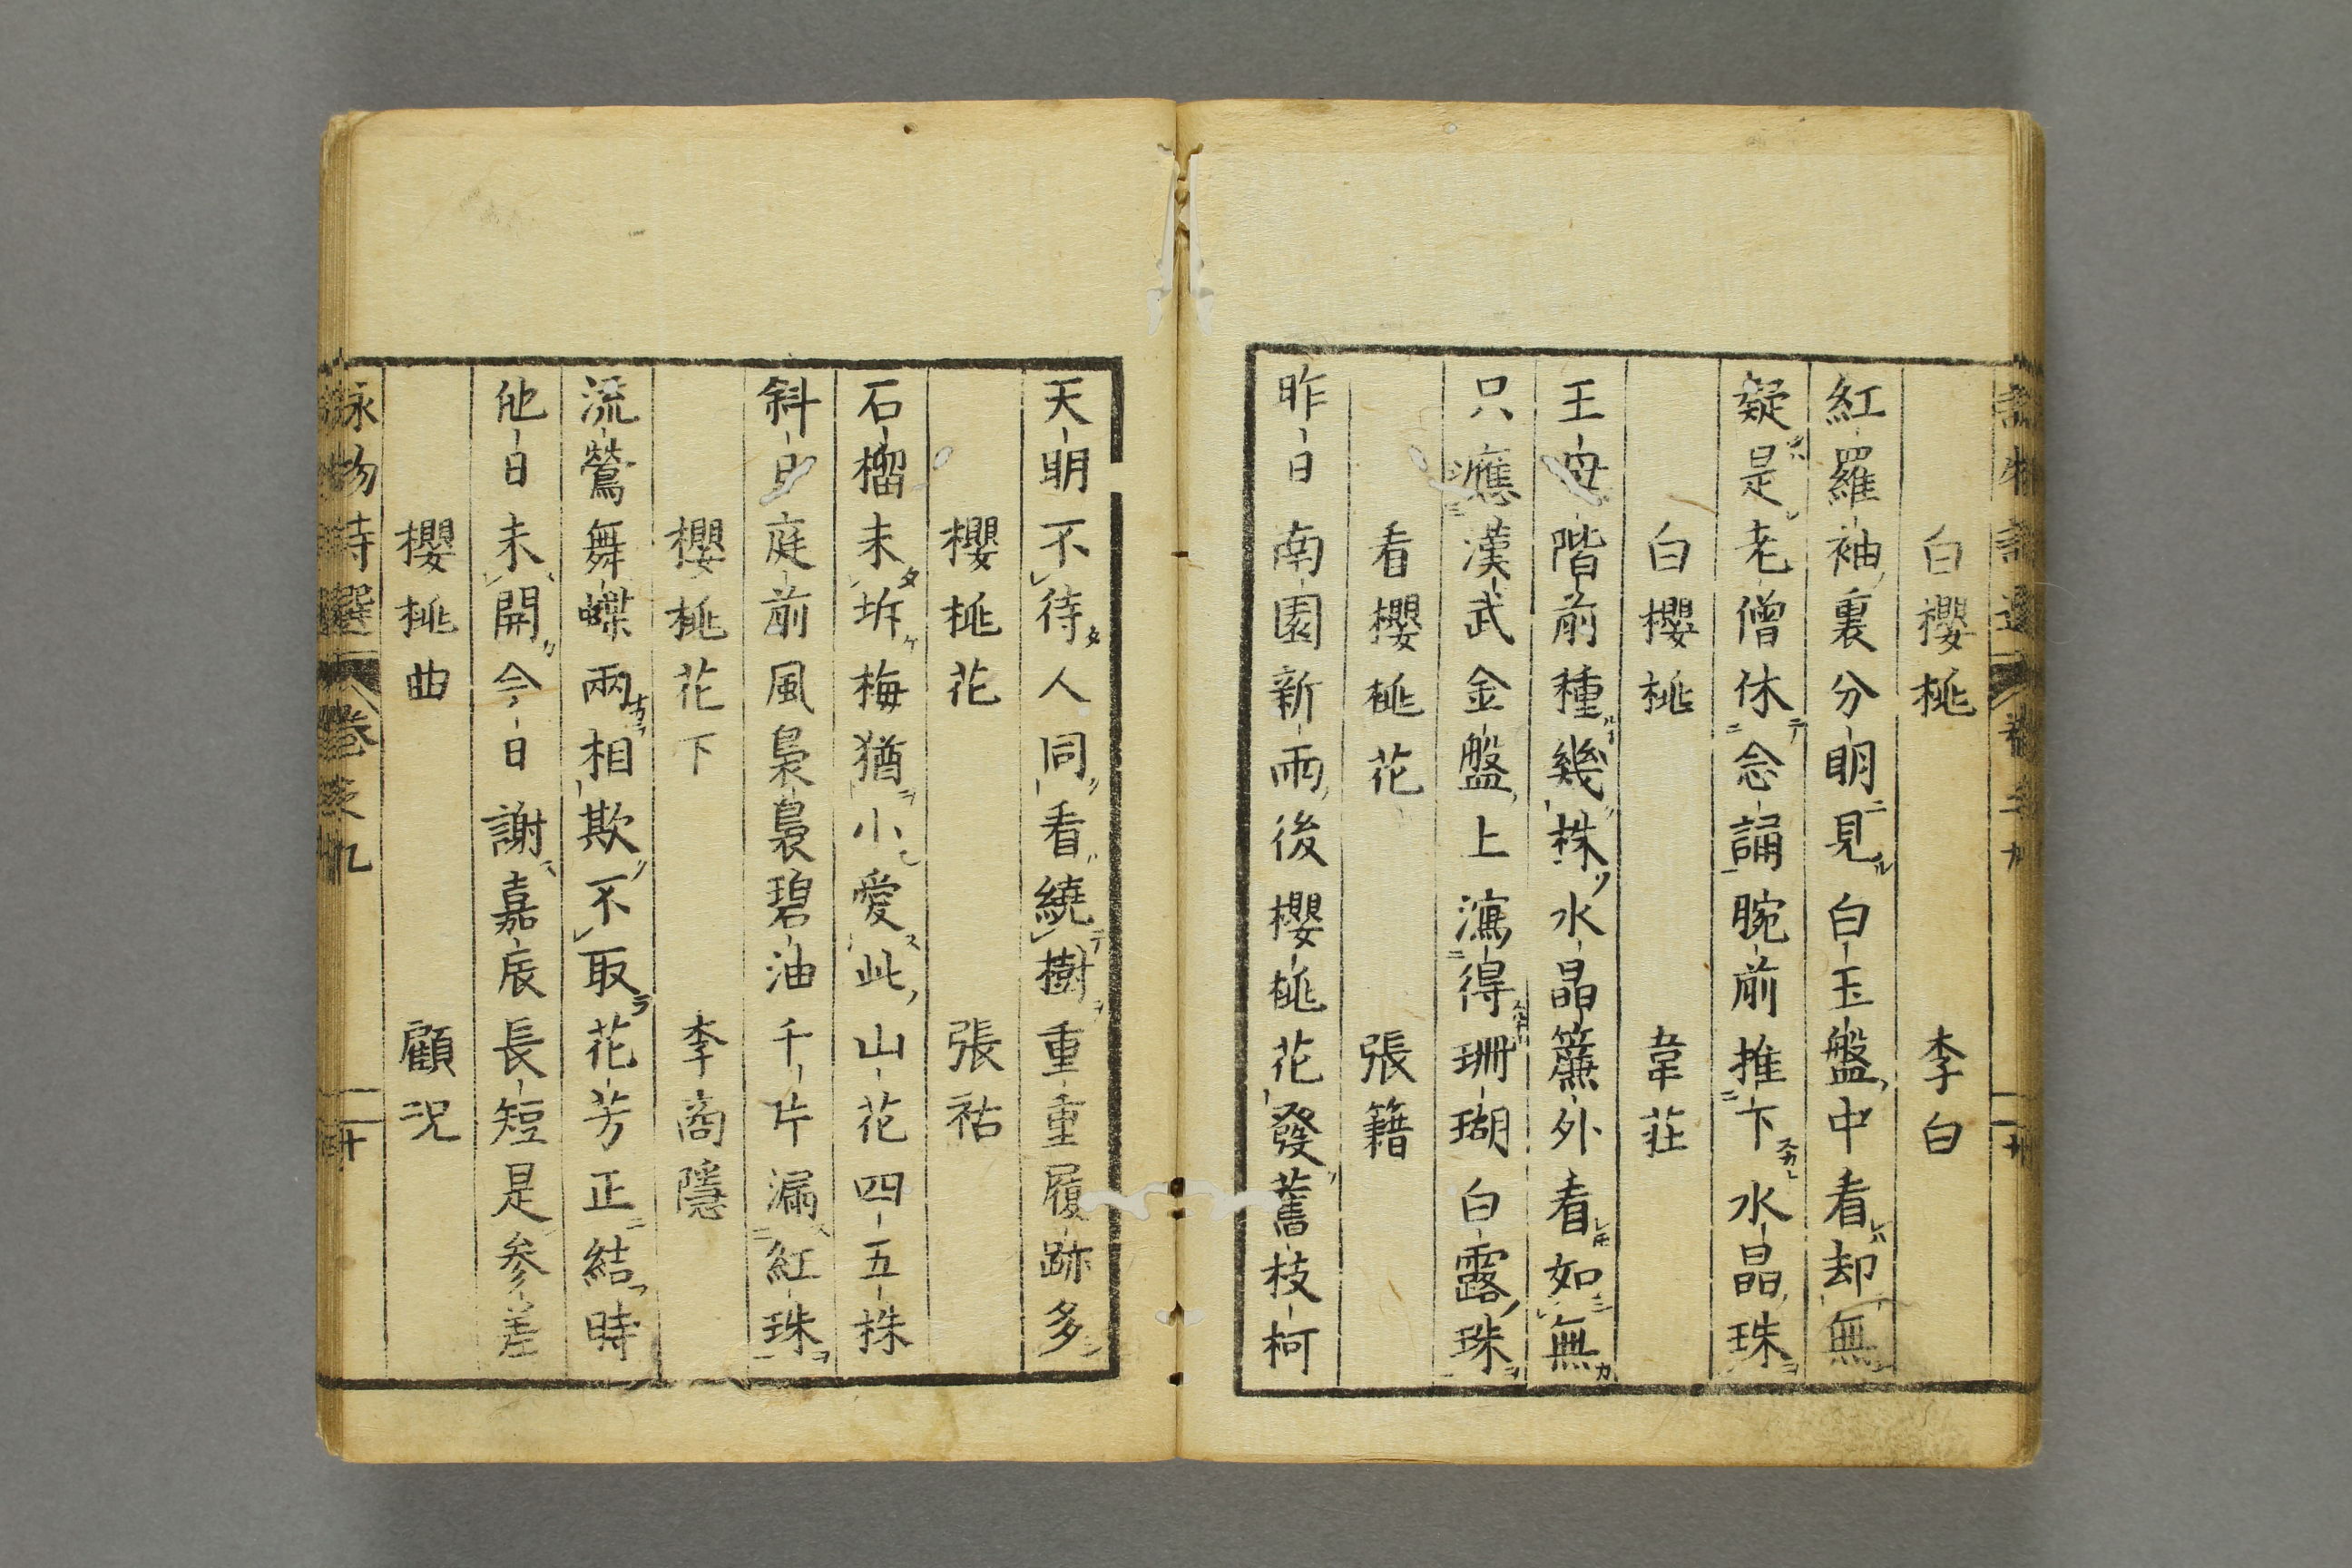 白櫻桃 李白
紅羅袖裏分明見白玉盤中看却無
疑是老僧休念誦腕前推下水晶珠
白櫻桃 韋莊
王母階前種幾株水晶簾外看如無
只應漢武金盤上瀉得珊瑚白露珠
看櫻桃花 張籍
昨日南園新雨後櫻桃花發舊枝柯
天明不待人同看繞樹重重履跡多
櫻桃花 張祜
石榴未坼梅猶小愛此山花四五株
斜日庭前風裊裊碧油千片漏紅珠
櫻桃花下 李商隱
流鶯舞蝶兩相欺不取花芳正結時
他日未開今日謝嘉辰長短是参差
櫻桃曲 顧況
咏物詩選 卷之九 十